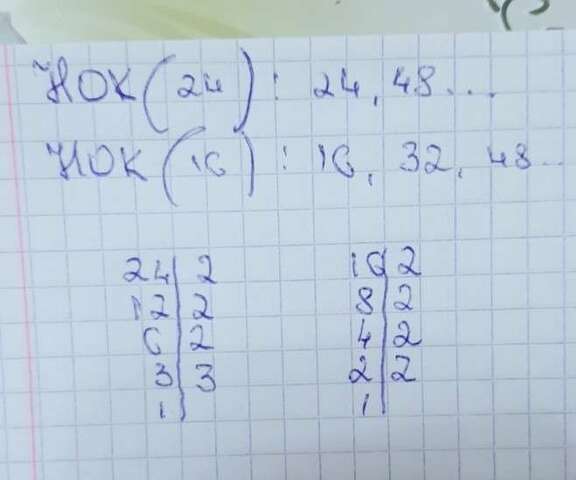 НОК(24): 24, 48...
НОК(16): 16, 32, 48...
24|2 16|2
12|2 8|2
6|2 4|2
3|3 2|2
1| 1|